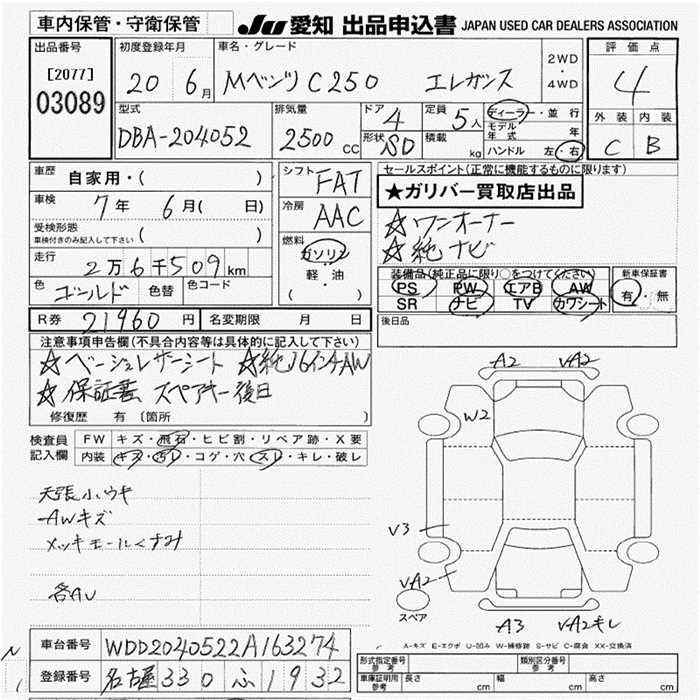 車内保管・守衛保管 JU 愛知 出品申込書 JAPAN USED CAR DEALERS ASSOCIATION
出品番号 初度登録年月 車名・グレード 評価点
[2077] 20 6月 Mベンツ C250 エレガンス 2WD・4WD 4
03089
型式 排気量 ドア 4 定員 5人 ディーラー・並行 外装 内装
DBA-204052 2500 CC 形状 SD 積載 kg モデル年式 年 C B
ハンドル 左・右
車歴 自家用・( ) シフト FAT セールスポイント(正常に機能するものに限ります)
車検 7年 6月( 日) 冷房 AAC ★ガリバー買取店出品
受検形態 ( ) ☆ワンオーナー
車検付きのみ記入して下さい
燃料 ガソリン ☆純ナビ
走行 2万6千509km 軽・油
( )
装備品(純正品に限り○をつけてください) 新車保証書
色 ゴールド 色替 色コード PS PW エアB AW 有・無
SR ナビ TV カワシート
R券 21960円 名変期限 月 日 後日品
注意事項申告欄(不具合内容等は具体的に記入して下さい)
☆ベージュレザーシート ☆純16インチAW
☆保証書 スペアキー後日
修復歴 有 〔箇所 〕
検査員 FW キズ・飛石・ヒビ割・リペア跡・X要
記入欄 内装 キズ・汚レ・コゲ・穴・スレ・キレ・破レ
天張小ウキ
AWキズ
メッキモールくすみ
各AU
A2 VA2
W2
V3
VA2
スペア
A3 VA2キレ
A-キズ E-エクボ U-凹み W-補修跡 S-サビ C-腐食 XX-交換済
車台番号 WDD2040522A163274
登録番号 名古屋 330 ふ 1932
形式指定番号 参考 類別区分番号 参考
車庫証明用 参考 長さ cm 幅 cm 高さ cm